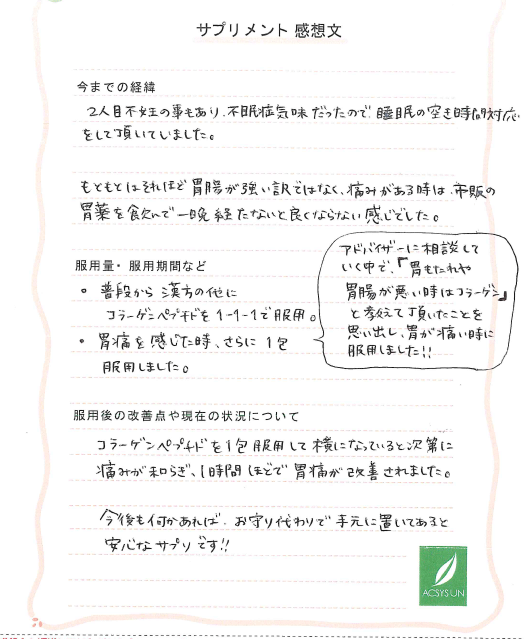 サプリメント 感想文
今までの経緯
2人目不妊の事もあり、不眠症気味だったので、睡眠の空き時間対応
をして頂いていました。
もともとはそれほど胃腸が強い訳ではなく、痛みがある時は、市販の
胃薬を飲んで一晩経たないと良くならない感じでした。
服用量・服用期間など
・普段から漢方の他に
コラーゲンペプチドを1-1-1で服用。
・胃痛を感じた時、さらに1包
服用しました。
アドバイザーに相談して
いく中で、「胃もたれや
胃腸が悪い時はコラーゲン」
と教えて頂いたことを
思い出し、胃が痛い時に
服用しました!!
服用後の改善点や現在の状況について
コラーゲンペプチドを1包服用して横になっていると次第に
痛みが和らぎ、1時間ほどで胃痛が改善されました。
今後も何かあれば、お守り代わりで手元に置いてあると
安心なサプリです!!
ACSYSUN